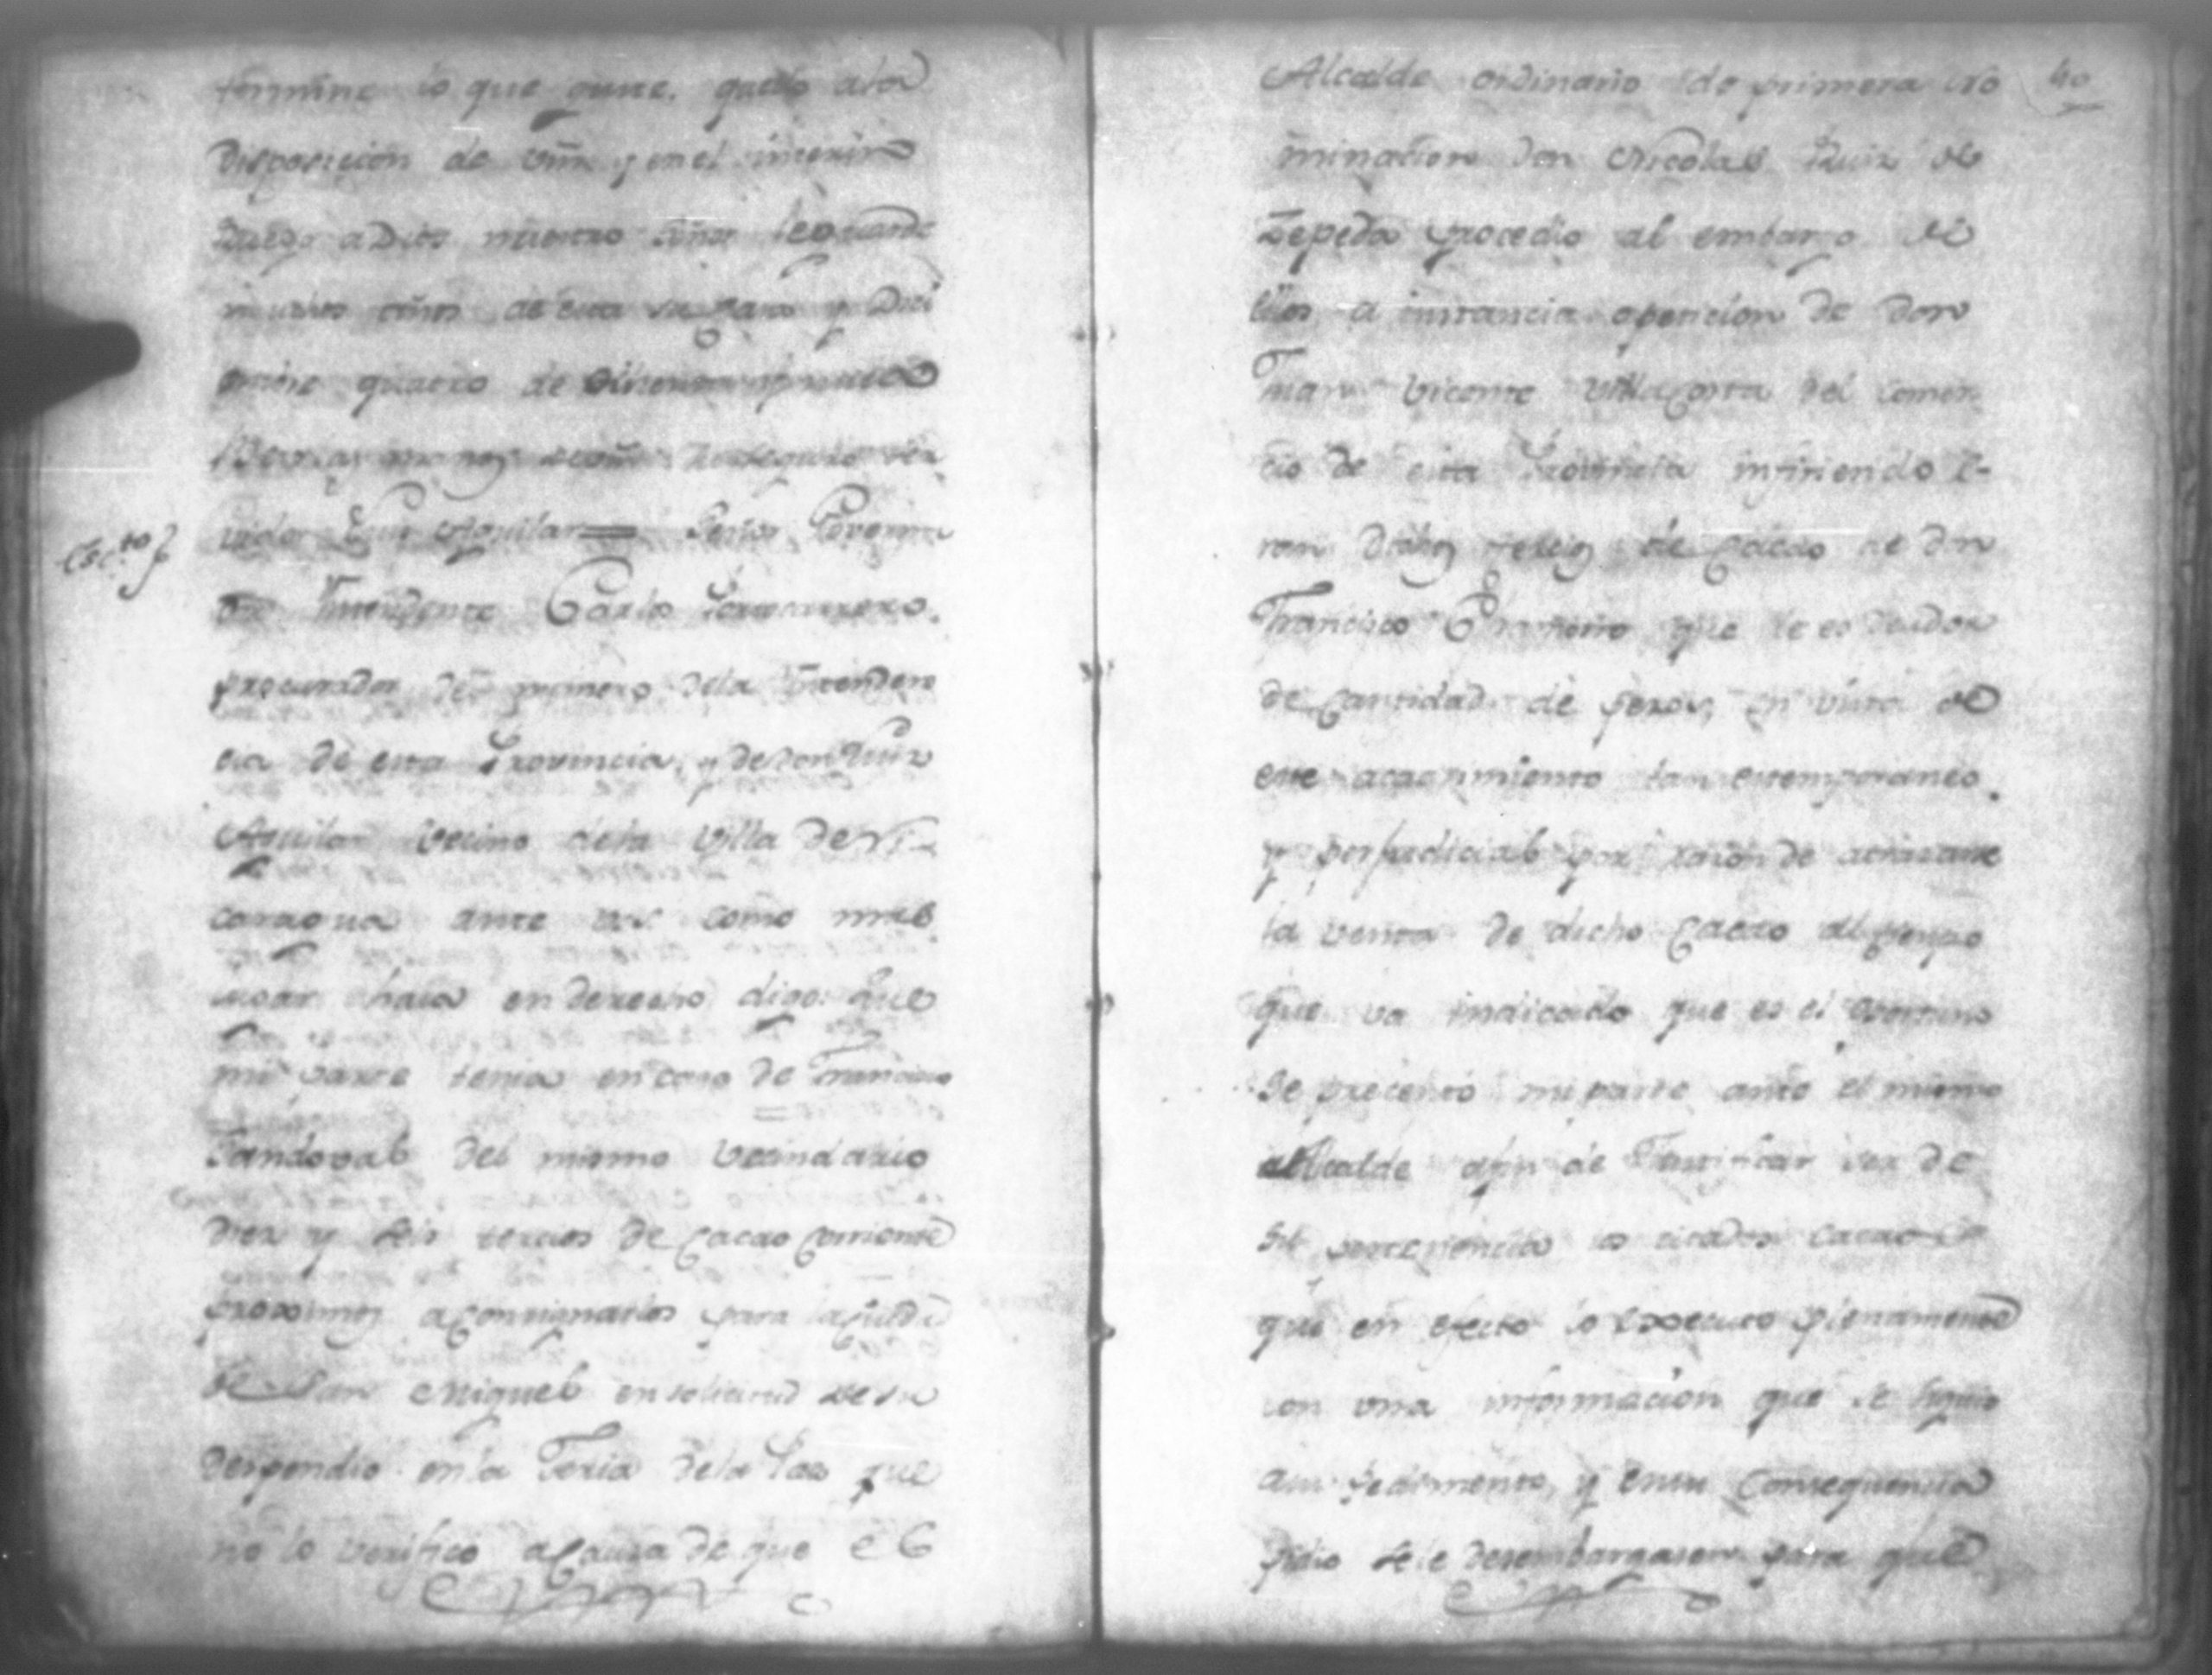 termine lo que guste. quedo ala
disposicion de Vm̃ y en el interin
Ruego a Dios nuestro señor le guarde
muchos años de esta su casa y Dici
embre quatro de ochocientos
Besa las manos de vm̃ su seguro ser
vidor Luis Aguilar = Señor Governa
Esc.to
dor Intendente Carlos Portocarrero.
procurador del numero dela Intenden
cia de esta Provincia, y de Don Luis
Aguilar Vecino dela Villa de Ni-
caragua ante VS. como mas
lugar haia en derecho digo: Que
mi parte tenia en caso de Francisco
Sandoval del mismo Vecindario
diez y seis tercios de Cacao Corriente
proximos a Consignarlos para la Ciudad
de San Miguel en solicitud de su
dispendio en la Feria dela Paz que
no lo verifico a Causa de que el
40
Alcalde ordinario de primera no
minacion Don Nicolas Ruiz de
Zepeda procedio al embargo de
ellos a instancia opeticion de Don
Juan Vicente Villacorta del comer
cio de esta Provincia infiriendo e-
ran dichos tercios de Cacao de Don
Francisco que le es deudor
de Cantidad de pesos, en vista de
este acaecimiento tan extemporaneo.
y perjudicial por razon de atrasarse
la venta de dicho Cacao al tiempo
que va indicado que es el oportuno
Se precento mi parte ante el mismo
alcalde afin de Justificar ser de
su pertenencia los citados Cacaos
que en efecto lo executo plenamente
con una informacion que se siguio
asu pedimento, y en su Consequencia
pidio sele desembargasen para que